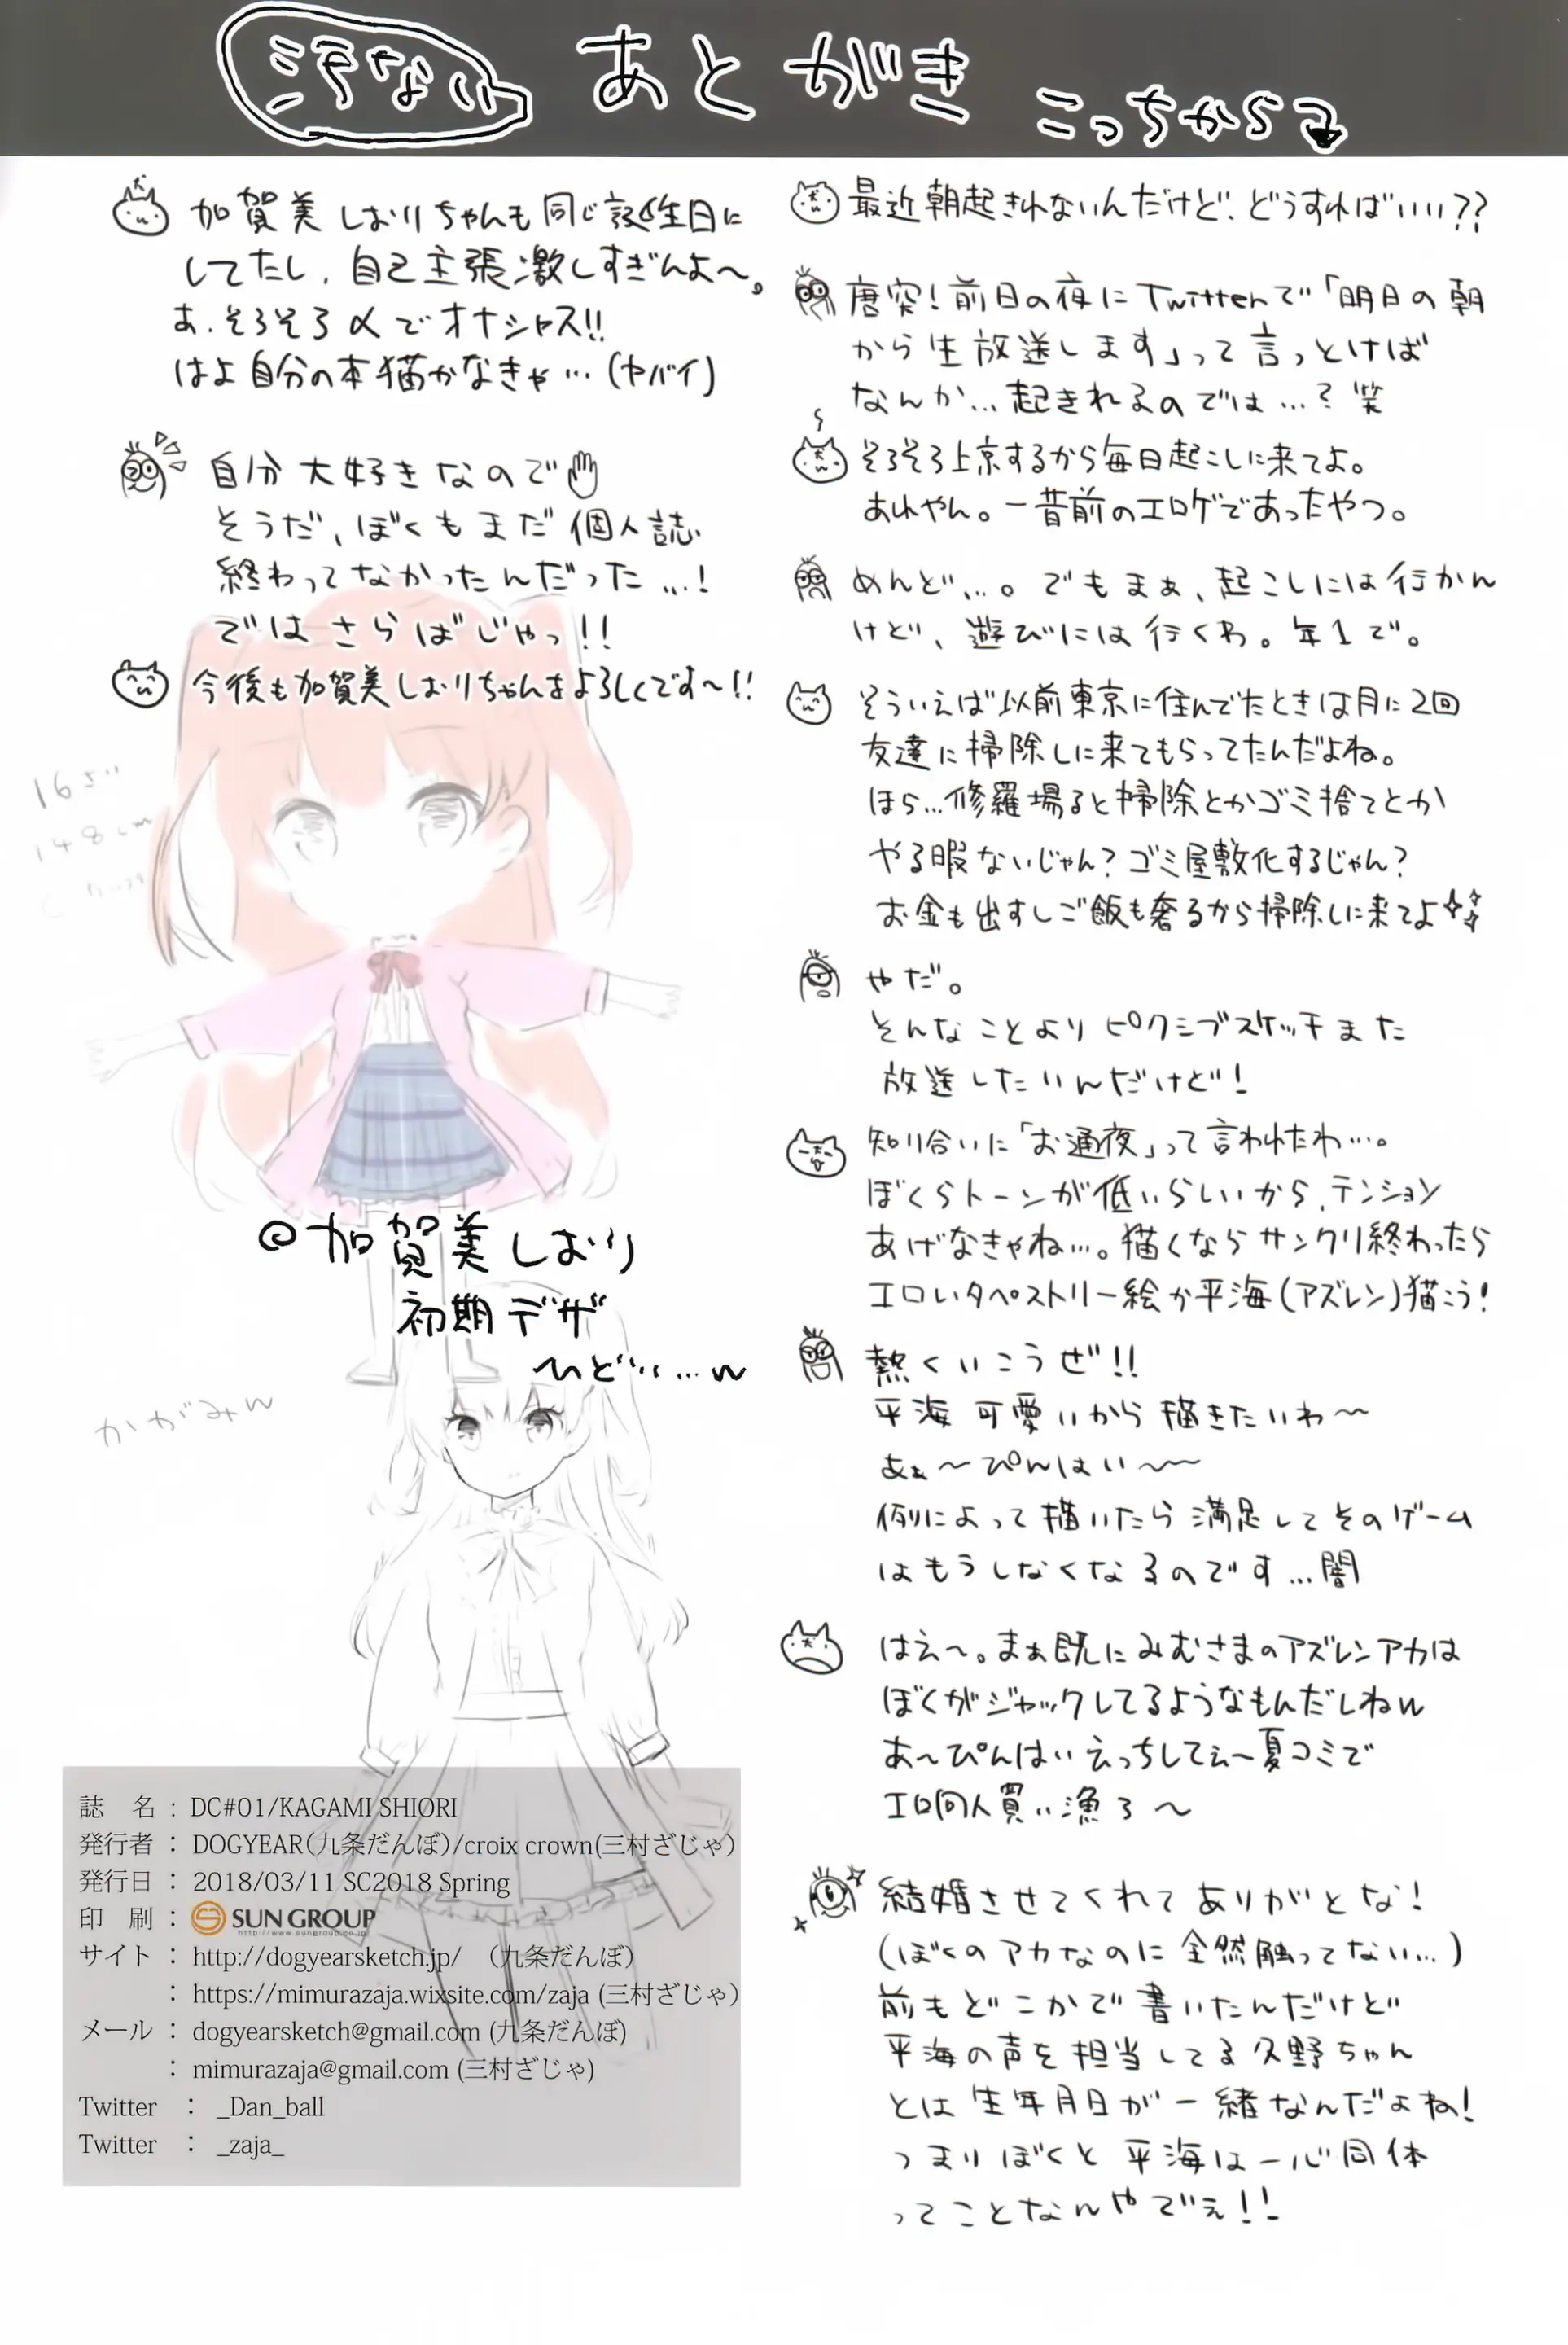 汚ない あとがき こっちから
最近朝起きれないんだけど、どうすればいい??
唐突!前日の夜にTwitterで「明日の朝
から生放送します」って言っとけば
なんか…起きれるのでは…?笑
そろそろ上京するから毎日起こしに来てよ。
あれやん。一昔前のエロゲであったやつ。
めんど…。でもまぁ、起こしには行かん
けど、遊びには行くわ。年1で。
そういえば以前東京に住んでたときは月に2回
友達に掃除しに来てもらってたんだよね。
ほら…修羅場ると掃除とかゴミ捨てとか
やる暇ないじゃん?ゴミ屋敷化するじゃん?
お金も出すしご飯も奢るから掃除しに来てよ
やだ。
そんなことよりピクシブスケッチまた
放送したいんだけど!
知り合いに「お通夜」って言われたわ…。
ぼくらトーンが低いらしいから、テンション
あげなきゃね…。描くならサンクリ終わったら
エロいタペストリー絵か平海(アズレン)描こう!
熱くいこうぜ!!
平海可愛いから描きたいわ〜
あぁ〜ぴんはい〜
例によって描いたら満足してそのゲーム
はもうしなくなるのです…闇
はえ〜。まぁ既にみむさまのアズレンアカは
ぼくがジャックしてるようなもんだしねw
あ〜ぴんはいえっちしてぇ〜夏コミで
エロ同人買い漁ろ〜
結婚させてくれてありがとな!
(ぼくのアカなのに全然触ってない…)
前もどこかで書いたんだけど
平海の声を担当してる久野ちゃん
とは生年月日が一緒なんだよね!
つまりぼくと平海は一心同体
ってことなんやでぇ!!
加賀美しおりちゃんも同じ誕生日に
してたし、自己主張激しすぎんよ〜。
あ、そろそろ〆でオナシャス!!
はよ自分の本描かなきゃ…(ヤバイ)
自分大好きなので
そうだ、ぼくもまだ個人誌
終わってなかったんだった…!
ではさらばじゃっ!!
今後も加賀美しおりちゃんをよろしくです〜!!
148cm
@加賀美しおり
初期デザ
ひどい…w
かがみん
誌 名 : DC#01/KAGAMI SHIORI
発行者 : DOGYEAR(九条だんぼ)/croix crown(三村ざじゃ)
発行日 : 2018/03/11 SC2018 Spring
印 刷 : SUN GROUP
http://www.sungroup.co.jp/
サイト : http://dogyearsketch.jp/ (九条だんぼ)
: https://mimurazaja.wixsite.com/zaja (三村ざじゃ)
メール : dogyearsketch@gmail.com (九条だんぼ)
: mimurazaja@gmail.com (三村ざじゃ)
Twitter : _Dan_ball
Twitter : _zaja_